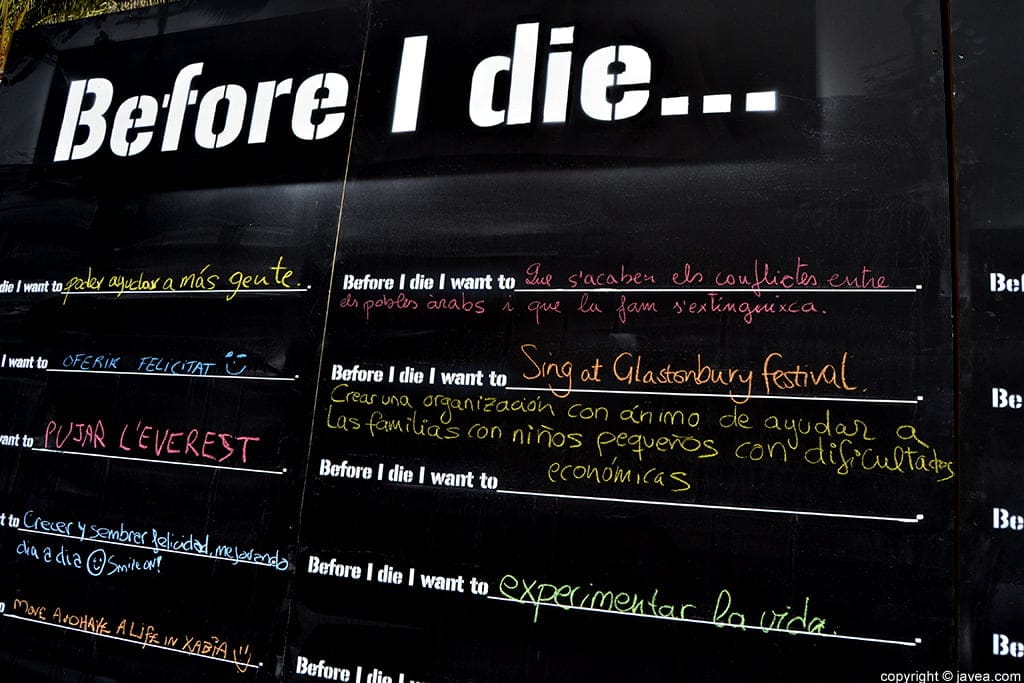 Before I die...
die I want to poder ayudar a más gente..
I want to OFERIR FELICITAT
want to PUJAR L'EVEREST.
t to Crecer y sembrar felicidad, mejorando
dia a dia Smile ON!
o MOVE AND HAVE A LIFE IN XABIA.
Before I die I want to Que s'acaben els conflictes entre.
els pobles àrabs i que la fam s'extingeixca.
Before I die I want to Sing at Glastonbury festival.
Crear una organización con ánimo de ayudar a
Las familias con niños pequeños con dificultades
económicas
Before I die I want to
Before I die I want to experimentar la vida.
Before I die I want
Bef
Be
Be
Be
copyright © javea.com